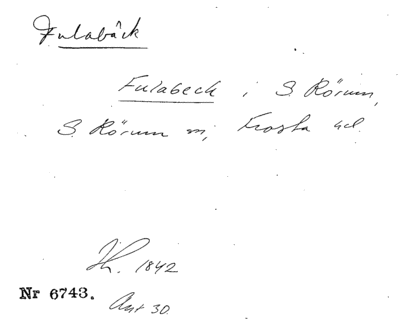 Fulabäck
Fulabeck i S. Rörum,
S. Rörum sn, Frosta hd.
Th. 1842
Nr 6743.
Ant 30